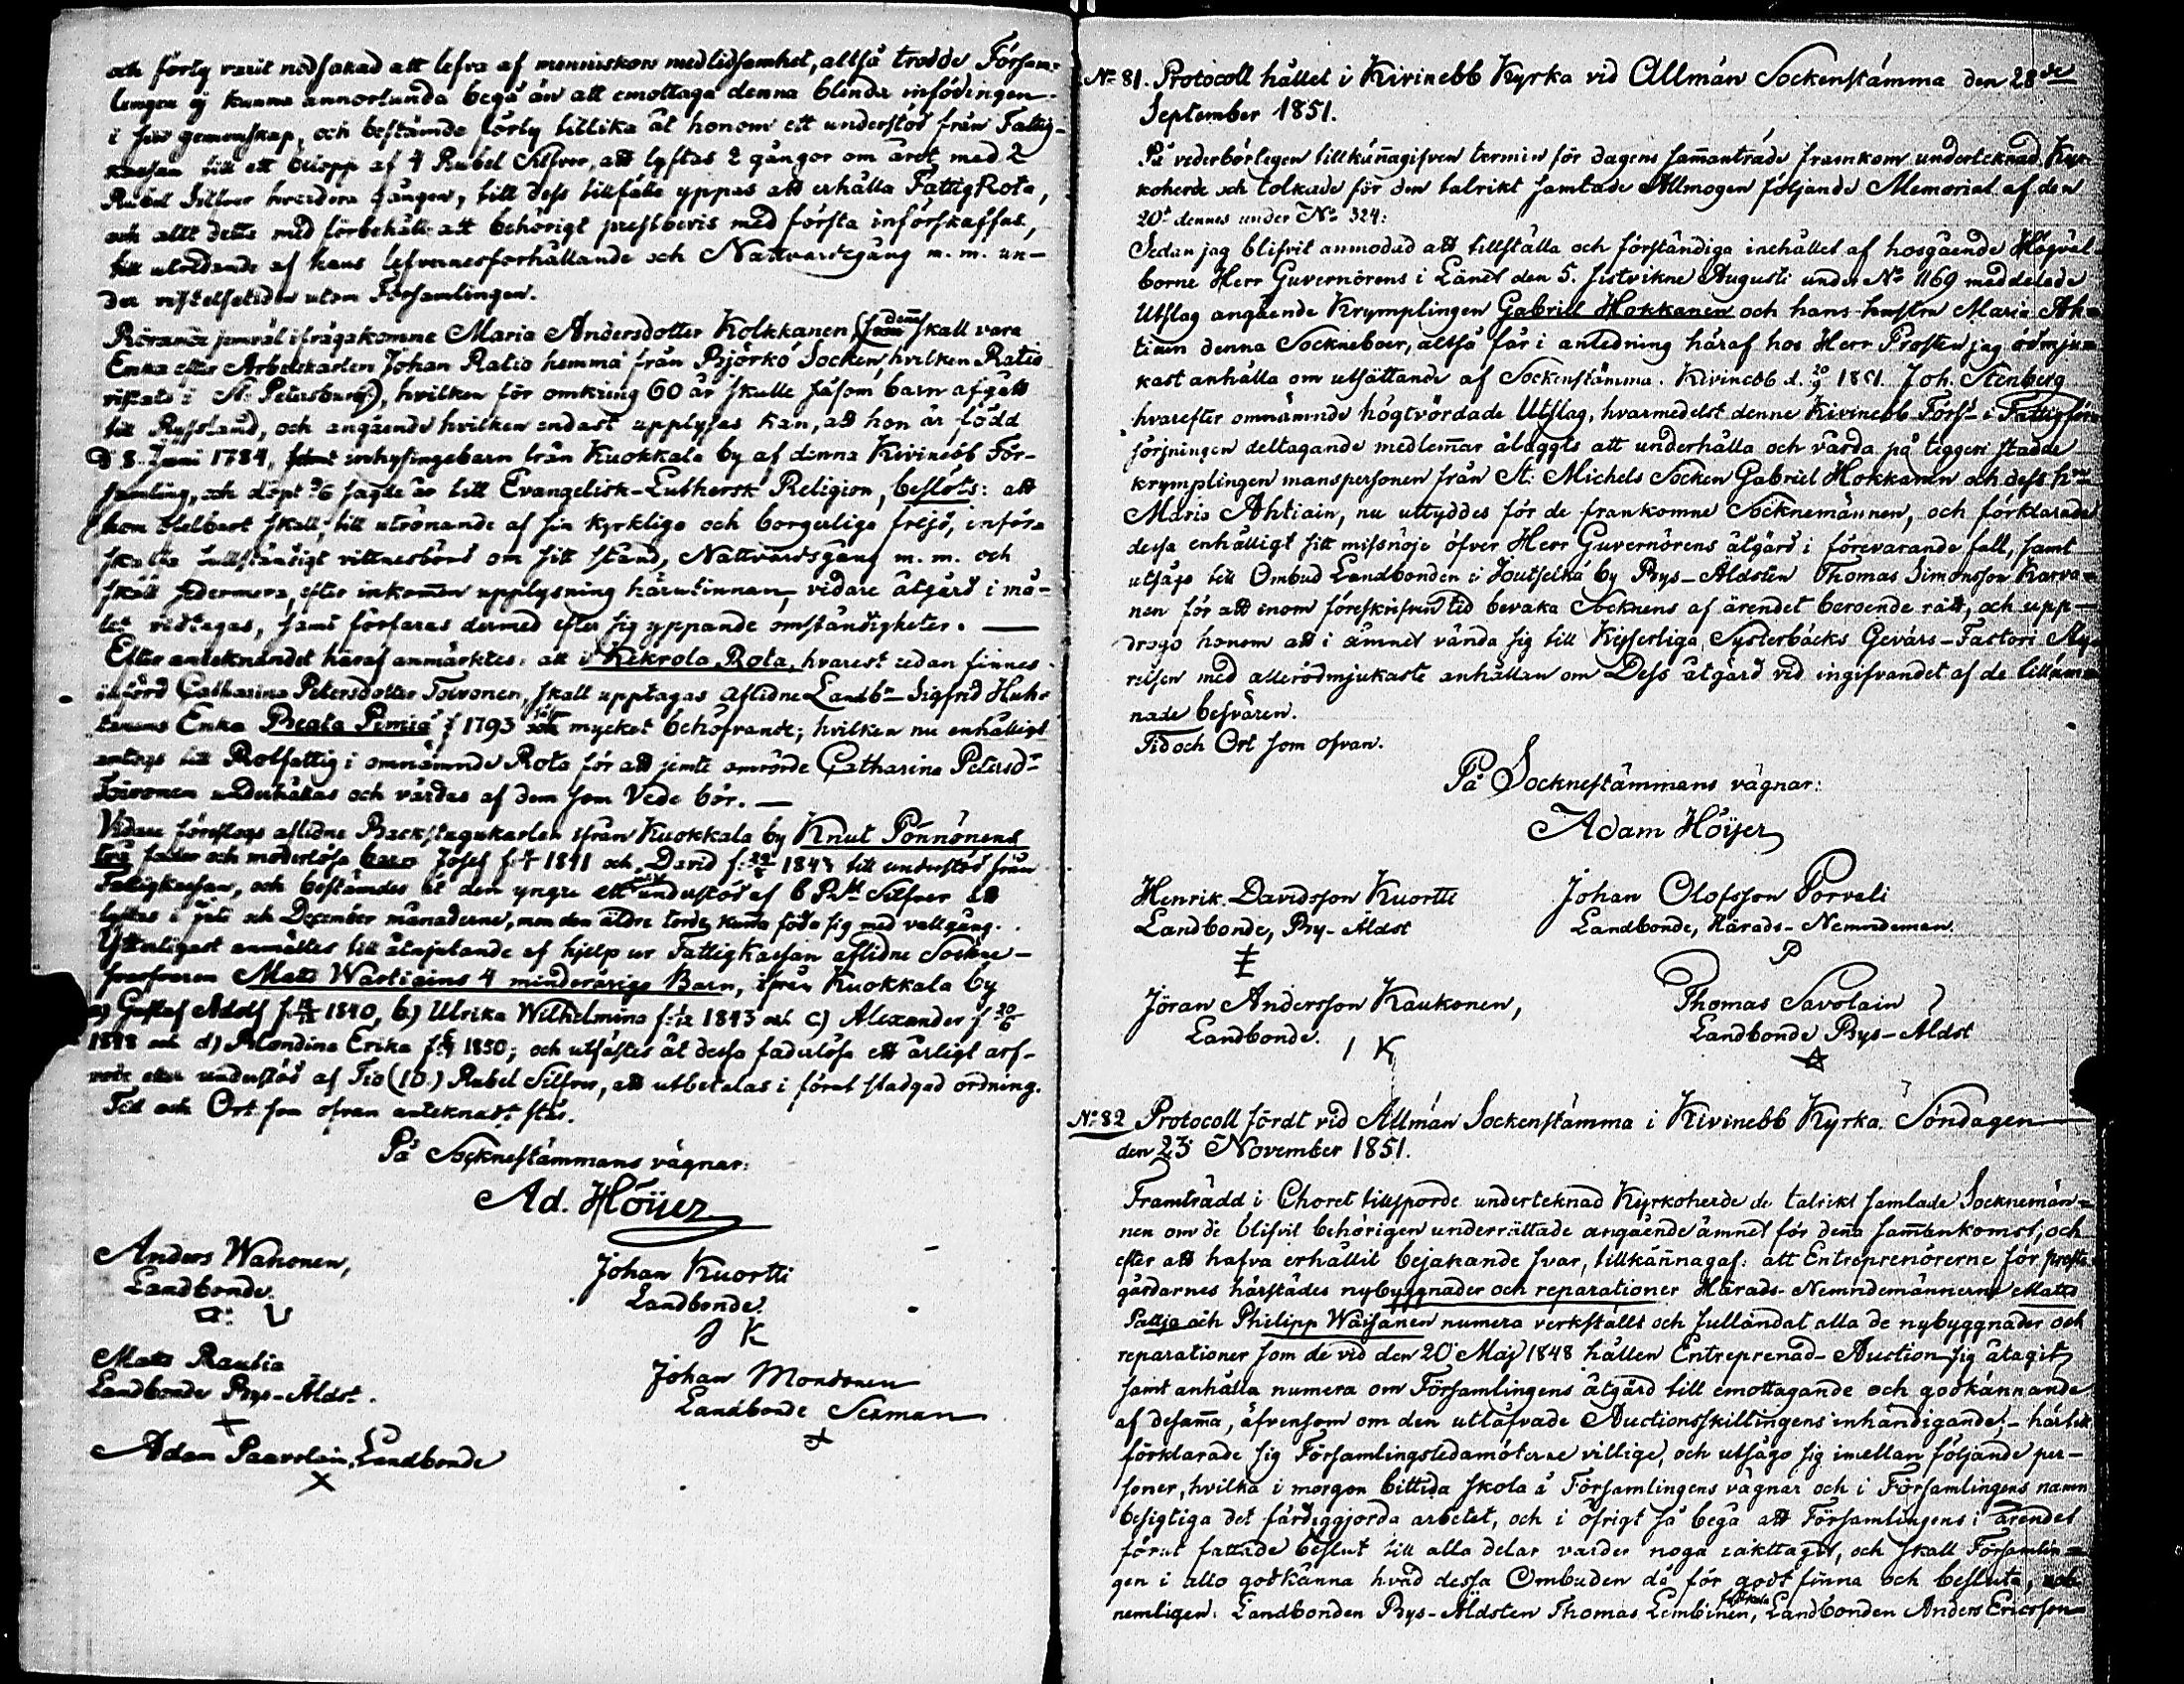 och förty varit nödsakad att lefva af menniskors medlidsamhet, altså trodde Försam-
lingen ej kunna annorlunda begå än att emottaga denna blinda inföding en
i sin gemenskap, och bestämde förty tillika åt honom ett understöd från Fattig-
kassan till ett belopp af 4 Rubel Silfver, att lyftas 2 gångor om året med 2
Rubel Silfver hvardera gången, till dess tillfälle yppas att erhålla FattigRota,
och allt detta med förbehåll att behörigt prestbevis med första införskaffas,
till utredande af hans lefvernesförhållande och Nattvardsgång m. m. un-
der vistelsetiden utom Församlingen.
Rörande jemväl ifrågakomne Maria Andersdotter Kolkkanen (som denna skall vara
Enka efter Arbetskarlen Johan Ratio hemma från Björkö Socken, hvilken Ratio
vistats i St. Petersburg), hvilken för omkring 60 år skulle såsom barn afgått
till Ryssland, och angående hvilken endast upplysas kan, att hon är född
d 8. Juni 1784, samt inhysingebarn från Kuokkala by af denna Kivinebb För-
samling, och döpt 9/6 sagde år till Evangelisk-Luthersk Religion, beslöts: att
hon ofelbart skall, till utrönande af sin kyrkliga och borgerliga frejd, införs-
skaffa fullständigt vittnesbörd om sitt stånd, Nattvardsgång m. m. och
skall sedermera, efter inkommen upplysning härutinnan, vidare åtgärd i må-
let vidtagas, samt förfaras dermed efter sig yppande omständigheter. —
Efter antecknandet häraf anmärktes: att i Kekrola Rota, hvarest redan finnes
införd Catharina Petersdotter Toivonen, skall upptagas aflidne Landb:n Sigfrid Huh-
tanens Enka Beata Pemiä f 1793 såsom mycket behöfvande; hvilken nu enhälligt
antogs till Rotfattig i omnämnde Rota för att jemte omrörde Catharina Petersd:r
Toivonen underhållas och vårdas af dem som Vede bör. —
Vidare föreslogs aflidne Backstugukarlen ifrån Kuokkala by Knut Pönnönens
två fader och moderlösa barn Josef 1841 och David 1843 till understöd från
Fattigkassan, och bestämdes åt den yngre ett understöd af 6 Rub. Silfver att
lyftas i Juli och December månaderne, men den äldre torde kunna föda sig med vallgång.
Ytterligast anmältes till åtnjutande af hjelp ur Fattigkassan aflidne Sockne-
Mats Wartiains 4 minderåriga Barn, ifrån Kuokkala by
a) Gustaf Adolf 1840, b) Ulrika Wilhelmina 1843 och c) Alexander f 20/6
1848 och d) Blondina Erika 1850; och utfästes åt dessa faderlösa ett årligt arf-
vode eller understöd af Tio (10.) Rubel Silfver, att utbetalas i förut stadgad ordning.
Tid och Ort som ofvan antecknadt står.
På Socknestämmans vägnar:
Ad. Höijer
Anders Wahonen,
Landbonde.
Johan Kuortti
Landbonde.
J K
Mats Rautia
Landbonde Bys-Äldst.
Johan Mondonen
Landbonde Sexman
Adam Paavolain, Landbonde
No 81. Protocoll hållet i Kivinebb Kyrka vid Allmän Sockenstämma den 28de
September 1851.
På vederbörligen tillkännagifven termin för dagens sammanträde framkom undertecknad Kyr-
koherde och tolkade för den talrikt samlade Allmogen följande Memorial af den
20de dennes under No 324:
Sedan jag blifvit anmodad att tillställa och förständiga inehållet af hosgående Högväl-
borne Herr Guvernörens i Länet den 5. sistvikne Augusti under No 1169 meddelade
Utslag angående Krymplingen Gabriel Hokkanen och hans hustru Maria Ah-
tiain denna Sockneboer, altså får i anledning häraf hos Herr Prosten jag ödmju-
kast anhålla om utsättande af Sockenstämma. Kivinebb d. 20/9 1851. Joh. Stenberg
hvarefter omnämnde högtvördade Utslag, hvarmedelst denne Kivinebb Förs:s i Fattigför-
sörjningen deltagande medlemar ålaggts att underhålla och vårda på tiggeri stadde
krymplingen manspersonen från St: Michels Socken Gabriel Hokkanen och dess h:ru
Maria Ahtiain, nu uttyddes för de framkomne Socknemännen, och förklarade
dessa enhälligt sitt missnöje öfver Herr Guvernörens åtgärd i förevarande fall, samt
utsågo till Ombud Landbonden i Joutselkä by Bys-Äldsten Thomas Simonsson Karva-
nen för att inom föreskrifven tid bevaka Socknens af ärendet beroende rätt, och upp-
drogo honom att i ämnet vända sig till Kejserliga Systerbäcks Gevärs-Factori Sty-
relsen med allerödmjukaste anhållan om Dess åtgärd vid ingifvandet af de tillämn-
nade besvären.
Tid och Ort som ofvan.
På Socknestämmans vägnar:
Adam Höijer
Henrik Davidsson Kuortti
Landbonde, By-Äldst
Johan Olofsson Porvali
Landbonde, Härads-Nemndeman.
P
Jöran Andersson Kaukonen,
Landbonde.
I K
Thomas Savolain
Landbonde Bys-Äldst
No 82 Protocoll fördt vid Allmän Sockenstämma i Kivinebb Kyrka Söndagen
den 23 November 1851.
Framträdd i Choret tillsporde undertecknad Kyrkoherde de talrikt samlade Socknemän-
nen om de blifvit behörigen underrättade angående ämnet för dena samankomst; och
efter att hafva erhållit bejakande svar, tillkännagaf: att Entreprenörerne för prest-
gårdarnes härstädes nybyggnader och reparationer Härads-Nemndemännerne Matts
Pattja och Philipp Wäisänen numera verkställt och fulländat alla de nybyggnader och
reparationer som de vid den 20 Maj 1848 hållen Entreprenad-Auction sig åtagit,
samt anhålla numera om Församlingens åtgärd till emottagande och godkännande
af desama, äfvensom om den utlåfvade Auctionsskillingens inhändigande; - härtill
förklarade sig Församlingsledamöterne villige, och utsågo sig imellan följande per-
soner, hvilka i morgon bittida skola å Församlingens vägnar och i Församlingens namn
besigtiga det färdiggjorda arbetet, och i öfrigt så begå att Församlingens i ärendet
förut fattade beslut till alla delar varder noga iakttaget, och skall Församlin-
gen i allo godkänna hvad dessa Ombuden då för godt finna och besluta,
nemligen: Landbonden Bys-Äldsten Thomas Lembinen, Landbonden Anders Ericsson